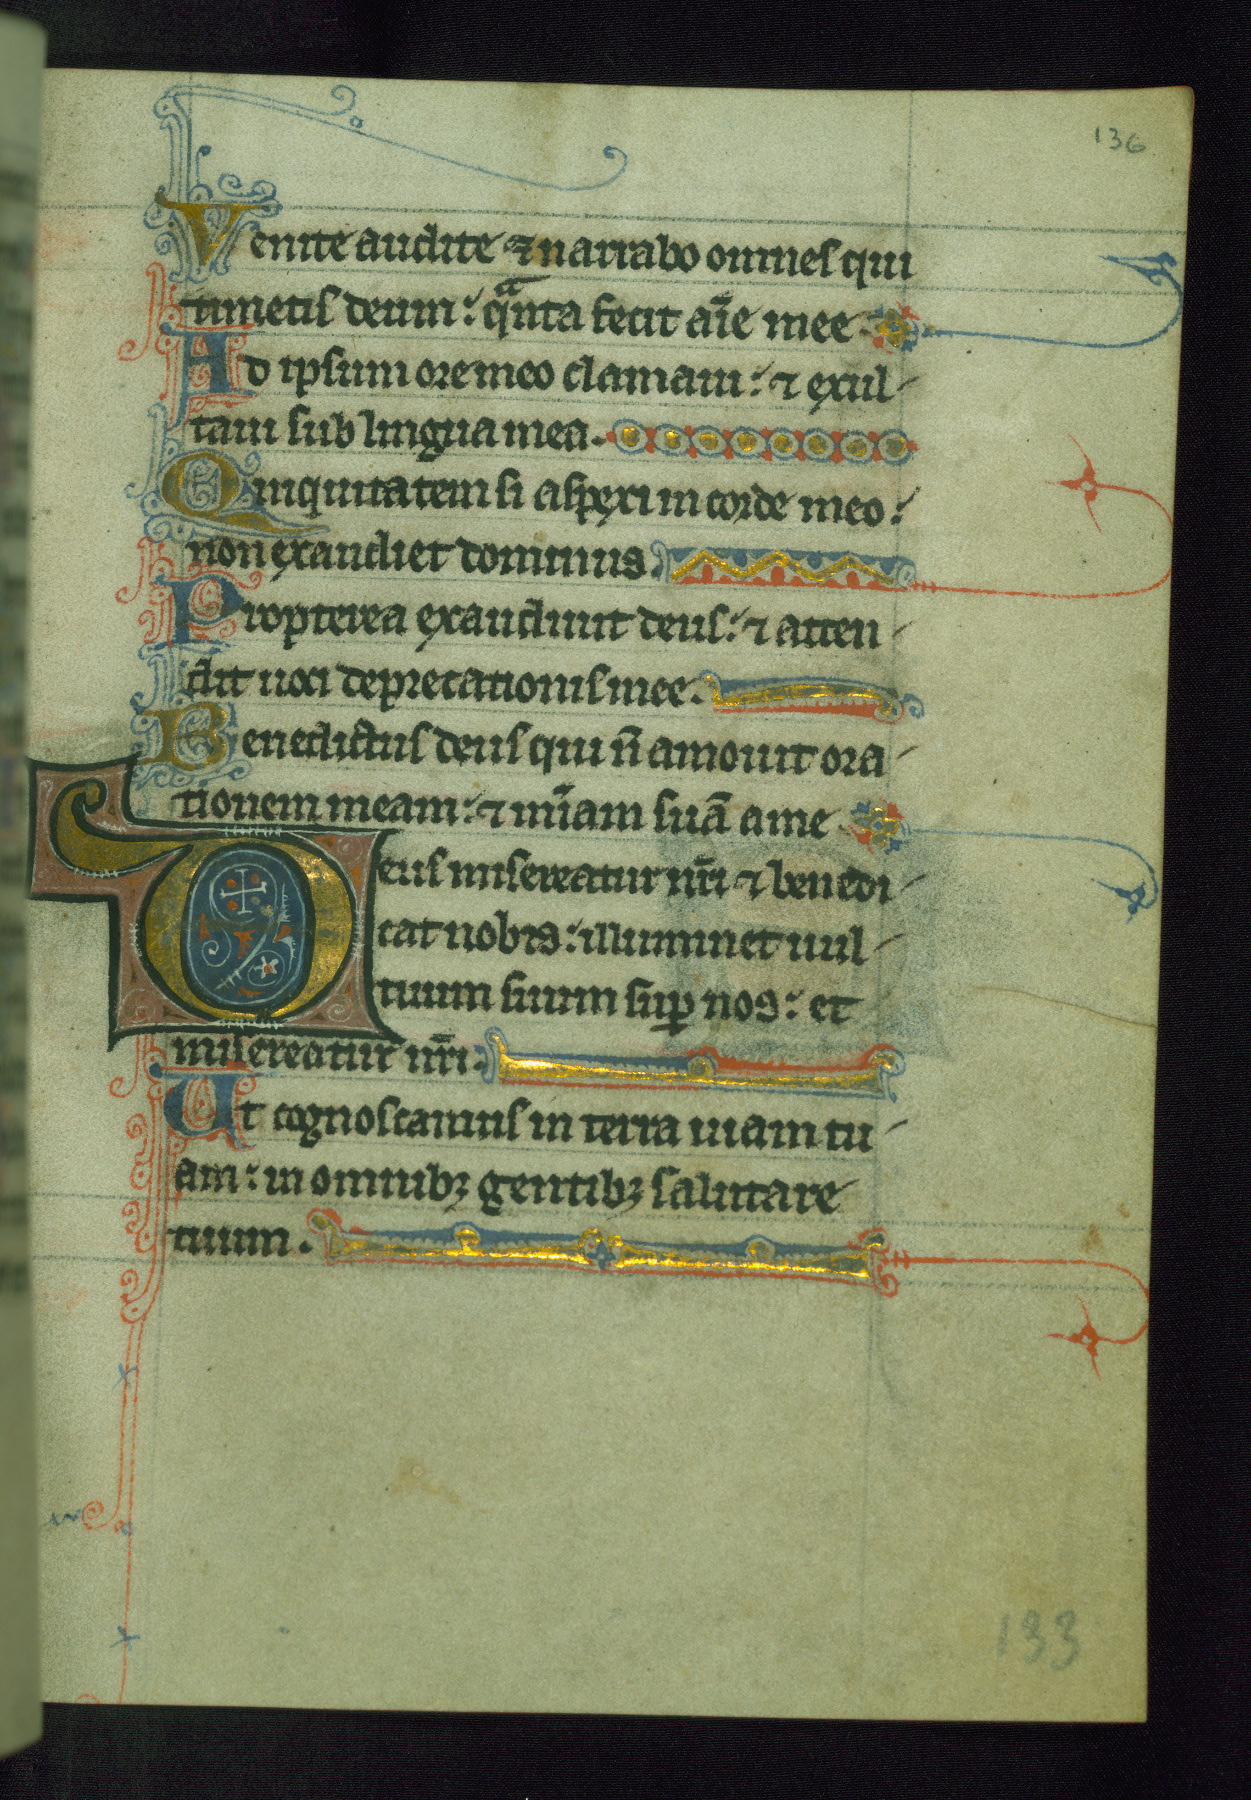 136
Venite audite ⁊ narrabo omnes qui
timetis deum: qᵃnta fecit aı̄e mee
Ad ipsum ore meo clamaui: ⁊ exul-
taui sub lingua mea.
Iniquitatem si aspexi in corde meo:
non exaudiet dominus.
Propterea exaudiuit deus: ⁊ atten-
dit uoci deprecationis mee.
Benedictus deus qui n̄ amouit ora-
tionem meam: ⁊ mı̄am suā a me
Deus misereatur nr̄i ⁊ benedi-
cat nobis: illuminet uul-
tuum suum suꝑ nos: et
misereatur nr̄i.
Ut cognoscamus in terra uiam tu-
am: in omnibꝫ gentibꝫ salutare
tuum.
133